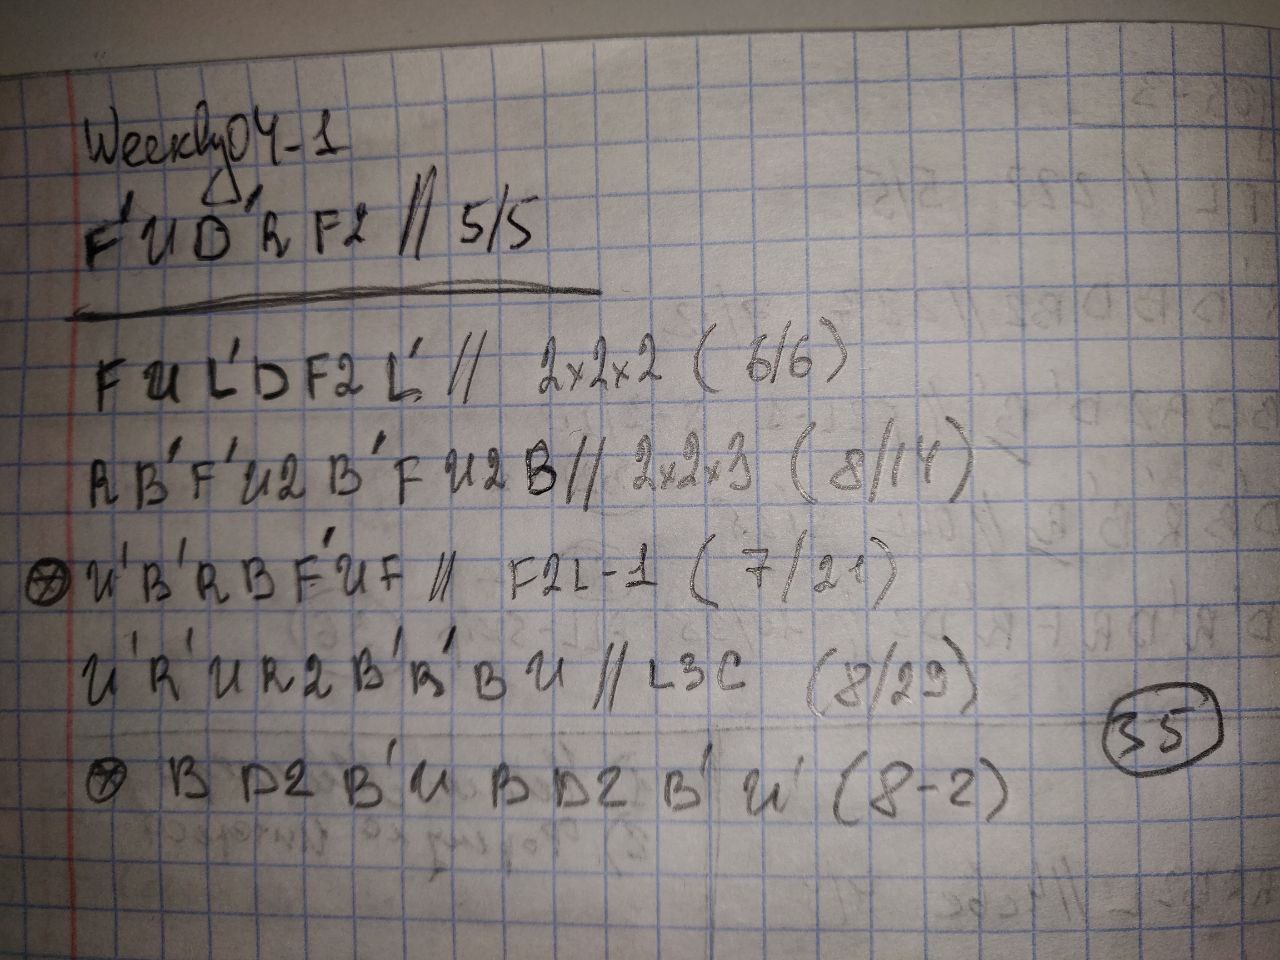 Weekly04-1
F' U D' R F2 // 5/5
F U L' D F2 L' // 2x2x2 ( 6/6)
R B' F' U2 B' F U2 B // 2x2x3 ( 8/14)
⊗ U' B' R B F' U F // F2L-1 ( 7/21)
U' R' U R2 B' R' B U // L3C (8/29)
35
⊗ B D2 B' U B D2 B' U' (8-2)